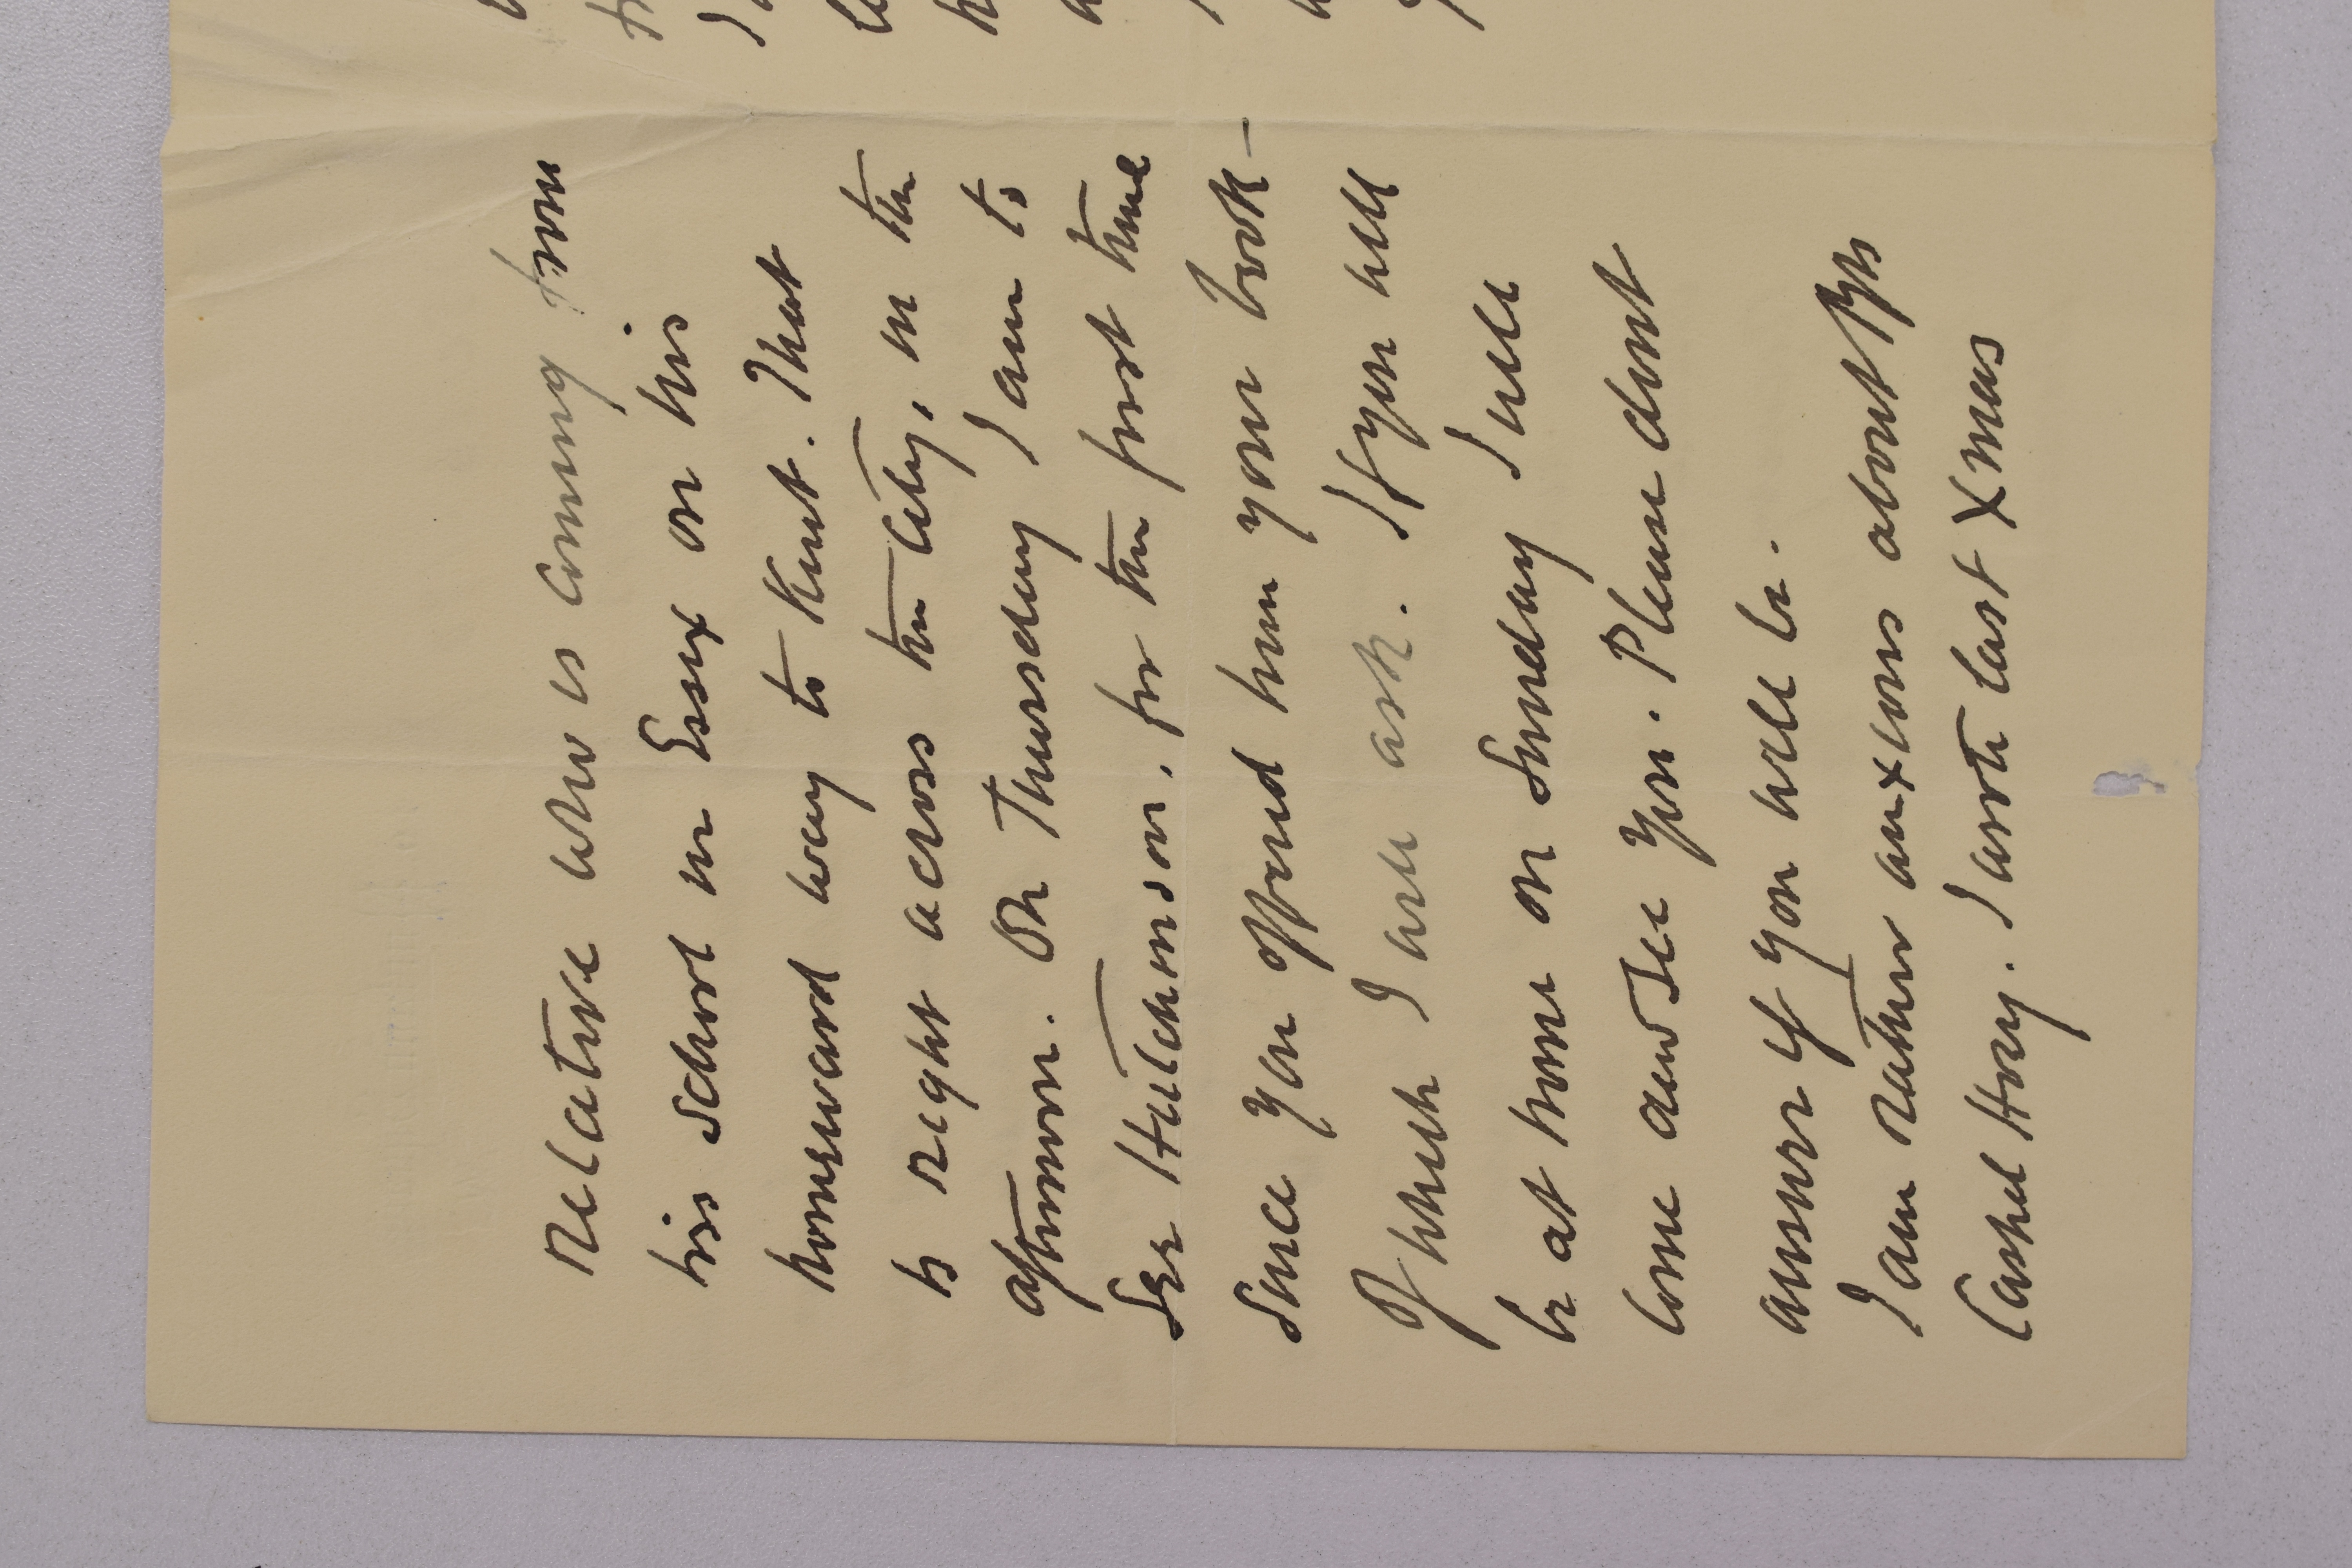 relative who is coming from
his school in Essex on his
homeward way to Kent. That
is right across the City, in the
afternoon. On Thursday I am to
see Hutchinson, for the first time
since you offered him your book –
of which I will ask. If you will
be at home on Sunday I will
come and see you. Please dont
answer if you will be.
I am rather anxious about
Cashel Hoey. I wrote last Xmas